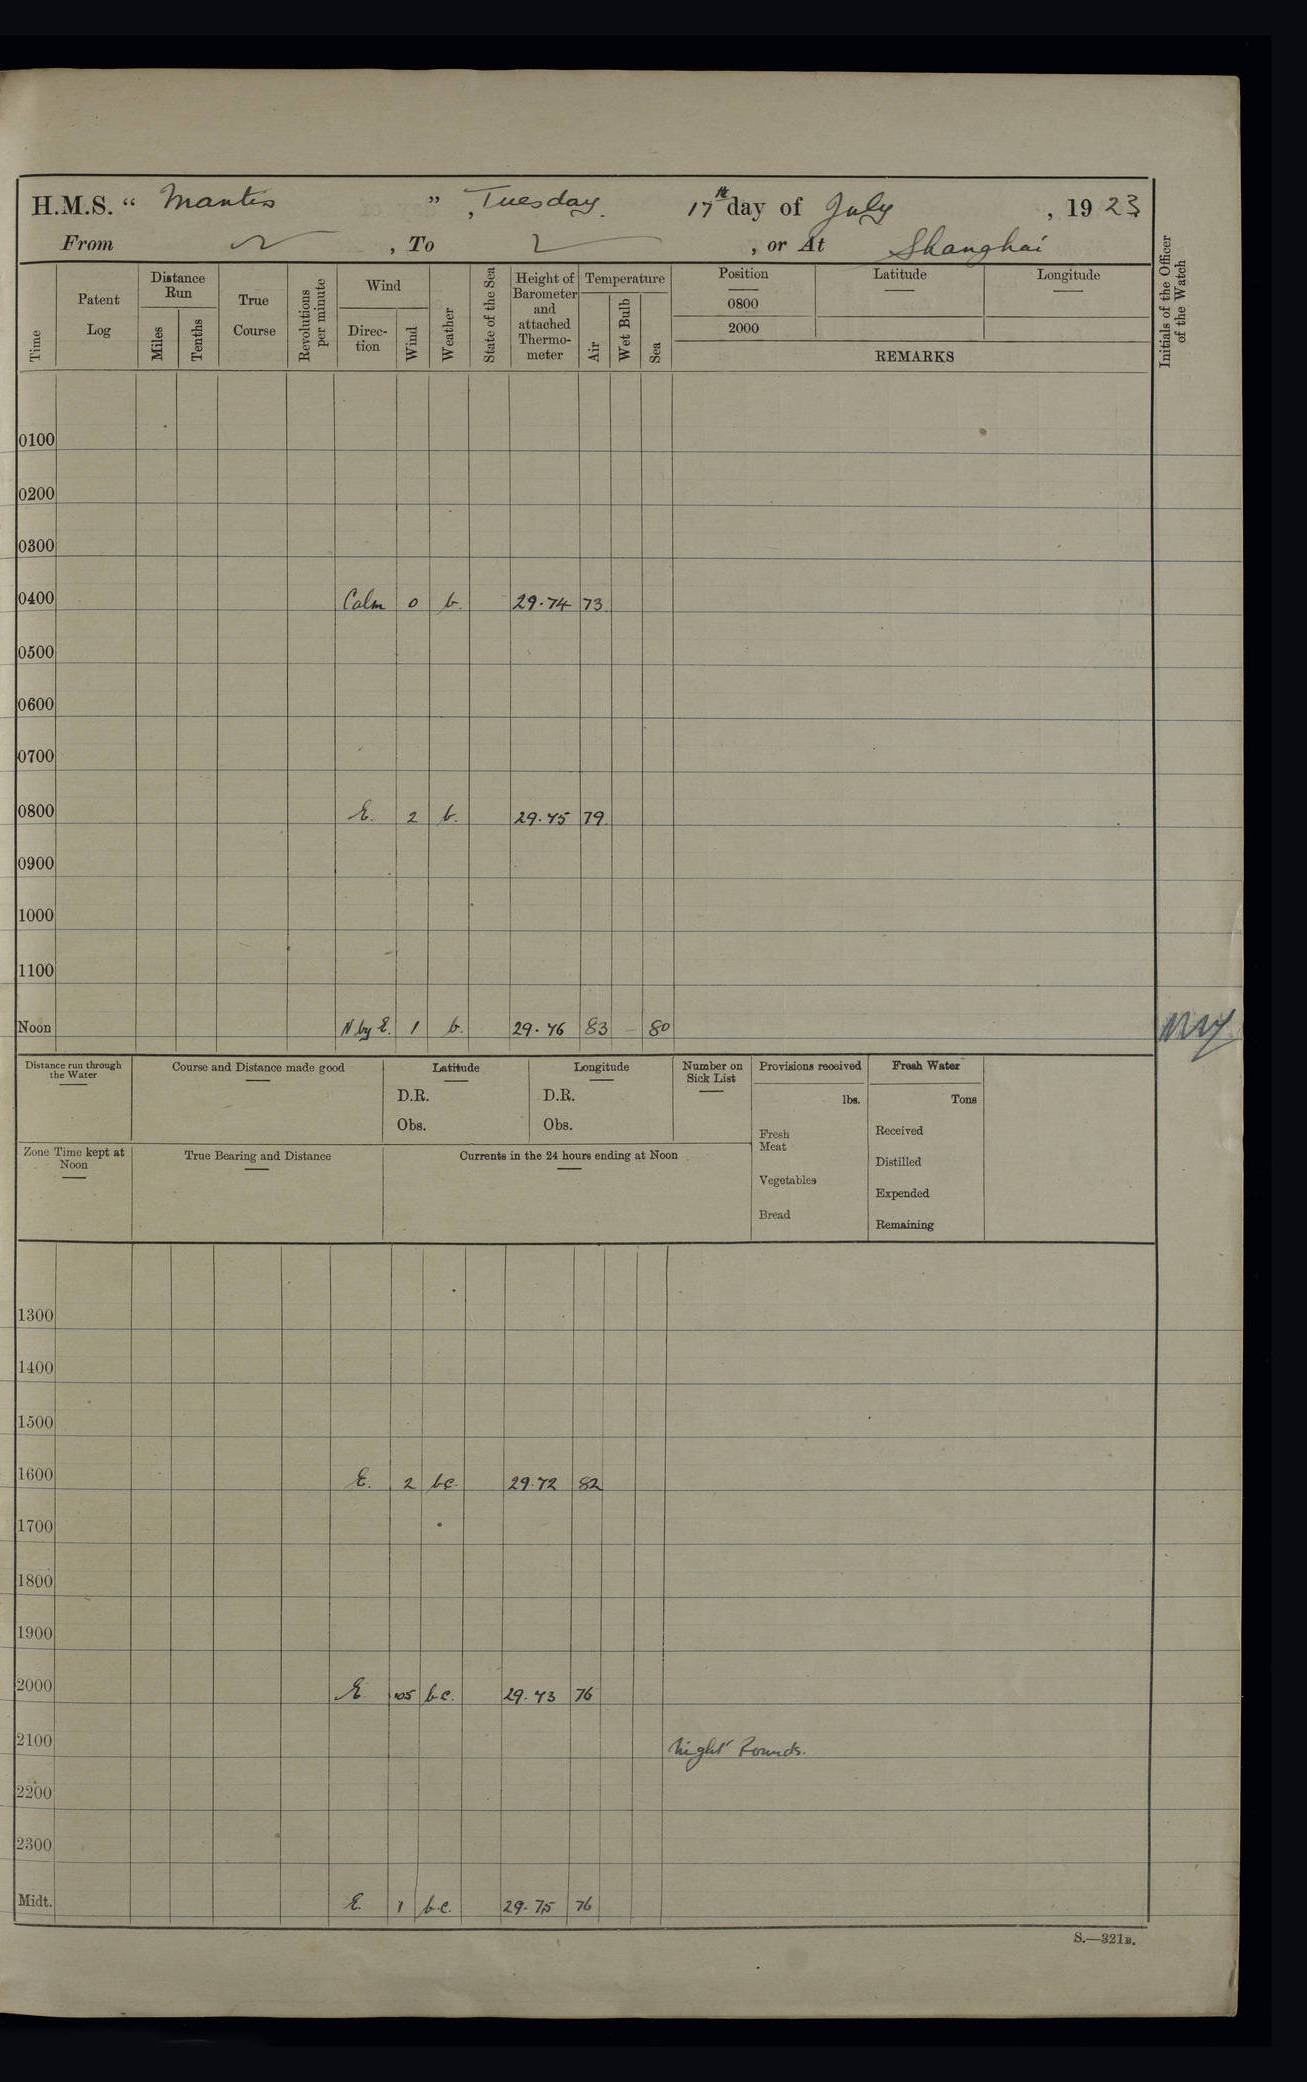 H.M.S. “ Mantis ” , Tuesday. 17th day of July , 19 23
From , To , or At Shanghai
Time
Patent Log
Distance Run
Miles
Tenths
True Course
Revolutions per minute
Wind
Direc-tion
Wind
Weather
State of the Sea
Height of Barometer and attached Thermo-meter
Temperature
Air
Wet Bulb
Sea
Position Latitude Longitude
0800
2000
REMARKS
Initials of the Officer of the Watch
0100
0200
0300
0400 Calm 0 b. 29.74 73
0500
0600
0700
0800 E. 2 b. 29.75 79
0900
1000
1100
Noon N by E. 1 b. 29.76 83 — 80
Distance run through the Water
Course and Distance made good
Latitude
D.R.
Obs.
Longitude
D.R.
Obs.
Number on Sick List
Provisions received
lbs.
Fresh Meat
Vegetables
Bread
Fresh Water
Tons
Received
Distilled
Expended
Remaining
Zone Time kept at Noon
True Bearing and Distance
Currents in the 24 hours ending at Noon
1300
1400
1500
1600 E. 2 bc. 29.72 82
1700
1800
1900
2000 E bc. 29.73 76
2100 Night Rounds.
2200
2300
Midt. E. 1 b.c. 29.75 76
S.—321B.